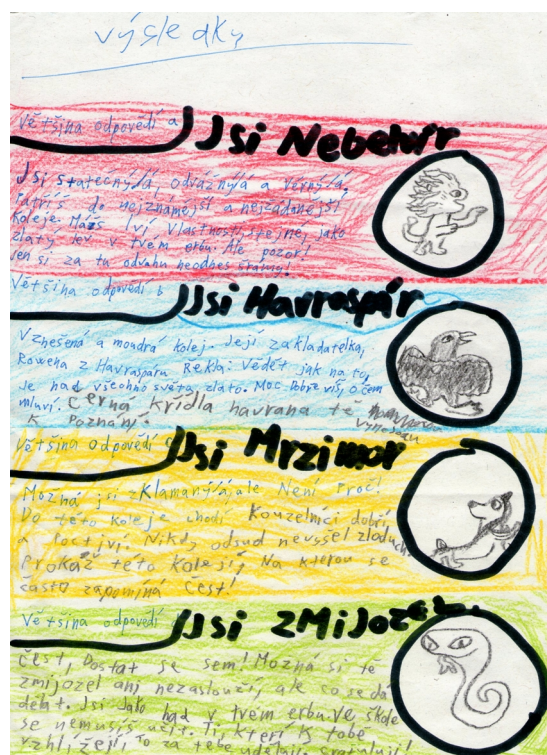 výsledky
Většina odpovědí a
Jsi Nebelvír
Jsi statečný/á, odvážný/á a věrný/á.
Patříš do nejznámější a nejžádanější
koleje. Máš lví vlastnosti, stejné, jako
zlatý lev v tvém erbu. Ale pozor!
Jen si za tu odvahu neodnes
Většina odpovědí b
Jsi Havraspár
Vznešená a moudrá kolej. Její zakladatelka,
Rowena z Havraspáru řekla: Vědět jak na to,
je nad všechno světa zlato. Moc dobře víš, o čem
mluví. Černá křídla havrana tě
k poznání.
Většina odpovědí
Jsi Mrzimor
Možná jsi zklamaný/á, ale Není proč!
Do této koleje chodí Kouzelníci dobří
a poctiví. Nikdy odsud nevyšel zloduch.
Prokaž této koleji, Na kterou se
často zapomíná čest!
Většina odpovědí
Jsi zMiJozel
čest, Dostat se sem! Možná si tě
zmijozel ani nezaslouží, ale co se dá
dělat. Jsi jako had v tvém erbu. Ve škole
se nemusíš učit. Ti, kteří K tobě
vzhlížejí, to za tebe udělají. Gratuluji!